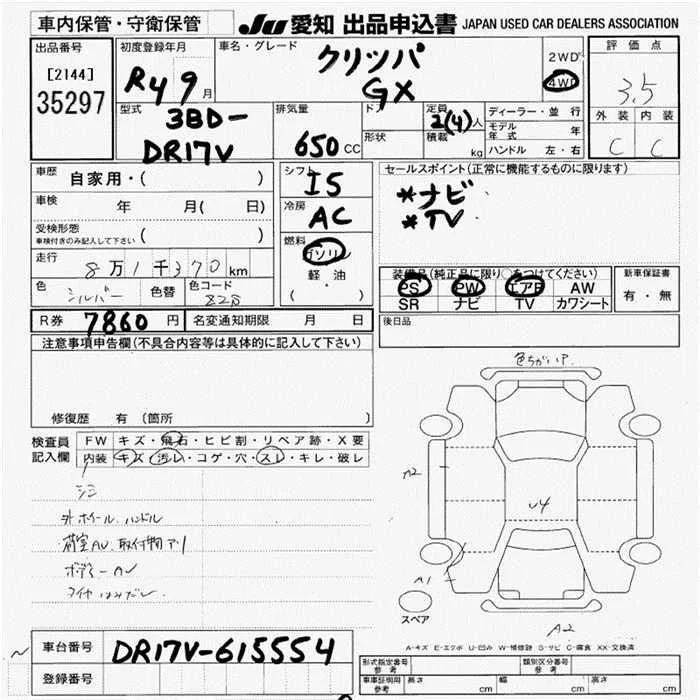 車内保管・守衛保管
JU 愛知 出品申込書 JAPAN USED CAR DEALERS ASSOCIATION
出品番号
[2144]
35297
初度登録年月
R4 9 月
車名・グレード
クリッパ
GX
2WD
4WD
評価点
3.5
外装 内装
C C
型式
3BD-
DR17V
排気量
650 CC
ドア
形状
定員
2(4)人
積載
kg
ディーラー・並行
モデル年式 年
ハンドル 左・右
車歴
自家用・( )
車検
年 月( 日)
受検形態
車検付きのみ記入して下さい ( )
走行
8万1千370km
色 シルバー 色替 色コード 828
シフト
I5
冷房
AC
燃料
ガソリン
軽油
( )
セールスポイント(正常に機能するものに限ります)
*ナビ
*TV
装備品(純正品に限り○をつけてください)
PS PW エアB AW
SR ナビ TV カワシート
新車保証書
有・無
R券 7860 円 名変通知期限 月 日
後日品
注意事項申告欄(不具合内容等は具体的に記入して下さい)
修復歴 有 (箇所
検査員記入欄
FW キズ・飛石・ヒビ割・リペア跡・X要
内装 キズ・汚レ・コゲ・穴・スレ・キレ・破レ
シミ
外ホイール、ハンドル
荷室AU、取付物アリ
タイヤはみだし
色ちがいア
A2
U4
A1
スペア
A2
A-キズ E-エクボ U-凹み W-補修跡 S-サビ C-腐食 XX-交換済
車台番号 DR17V-615554
登録番号
形式指定番号 参考
類別区分番号 参考
車庫証明用 参考 長さ cm 幅 cm 高さ cm